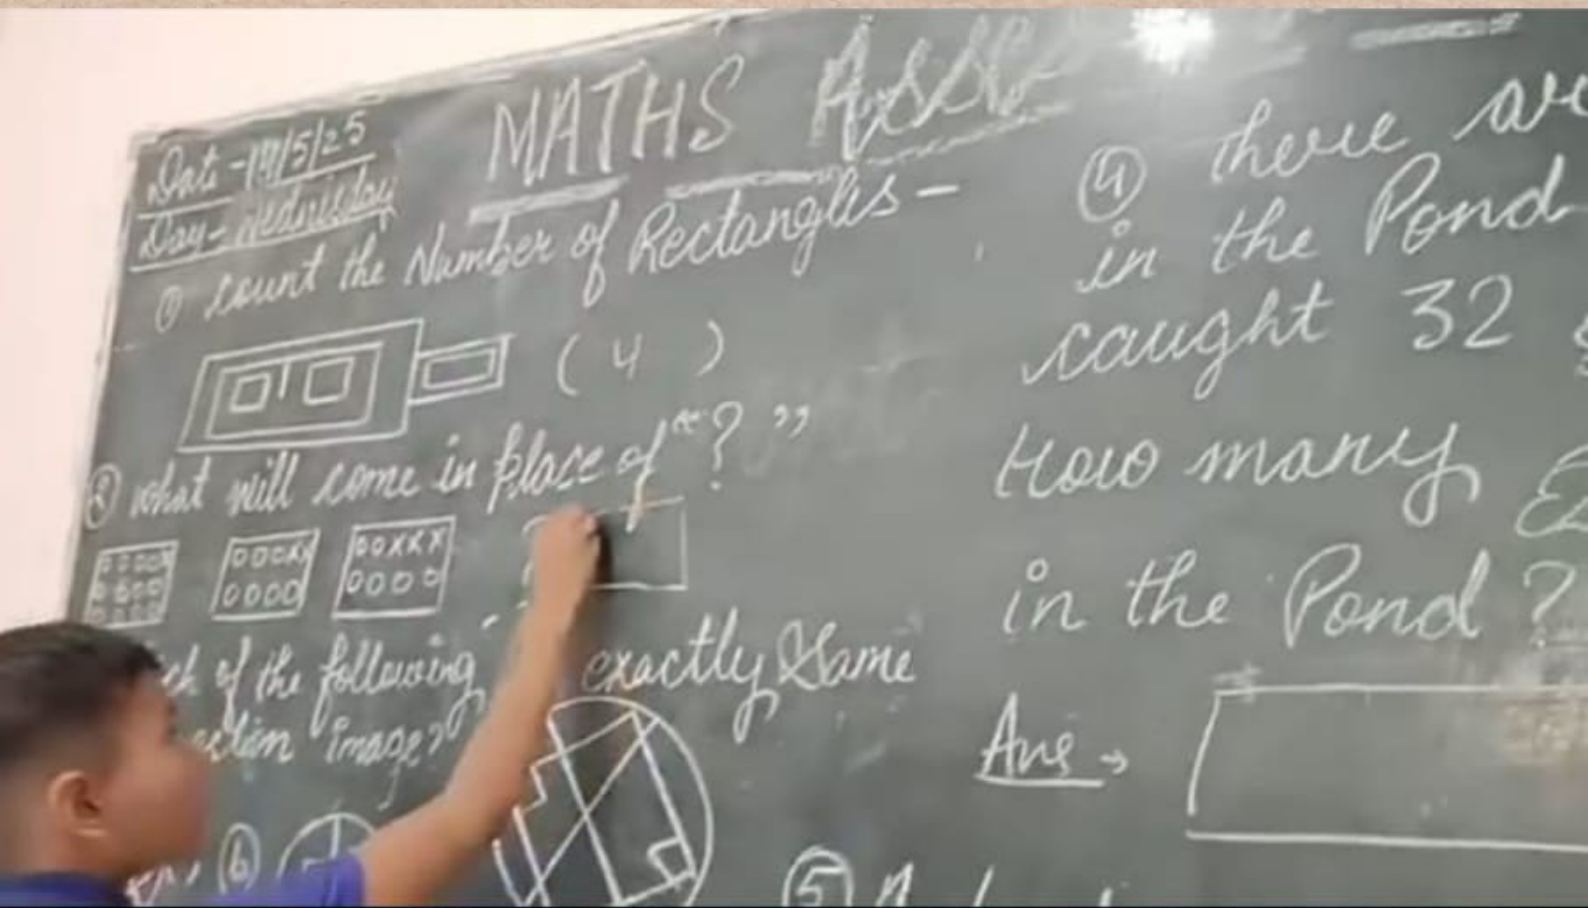 Date - 14/5/25
Day - Wednesday
MATHS
① count the Number of Rectangles -
( 4 )
② what will come in place of "?"
0 0 0 X X
0 0 0 0
0 0 X X X
0 0 0 0
of the following exactly Same
image?
⑥
④ there are
in the Pond
caught 32
How many
in the Pond ?
Ans →
⑤